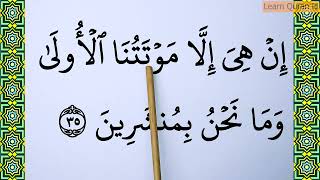 Learn Quran id
إِنْ هِىَ إِلَّا مَوْتَتُنَا ٱلْأُولَىٰ
وَمَا نَحْنُ بِمُنشَرِينَ ٣٥